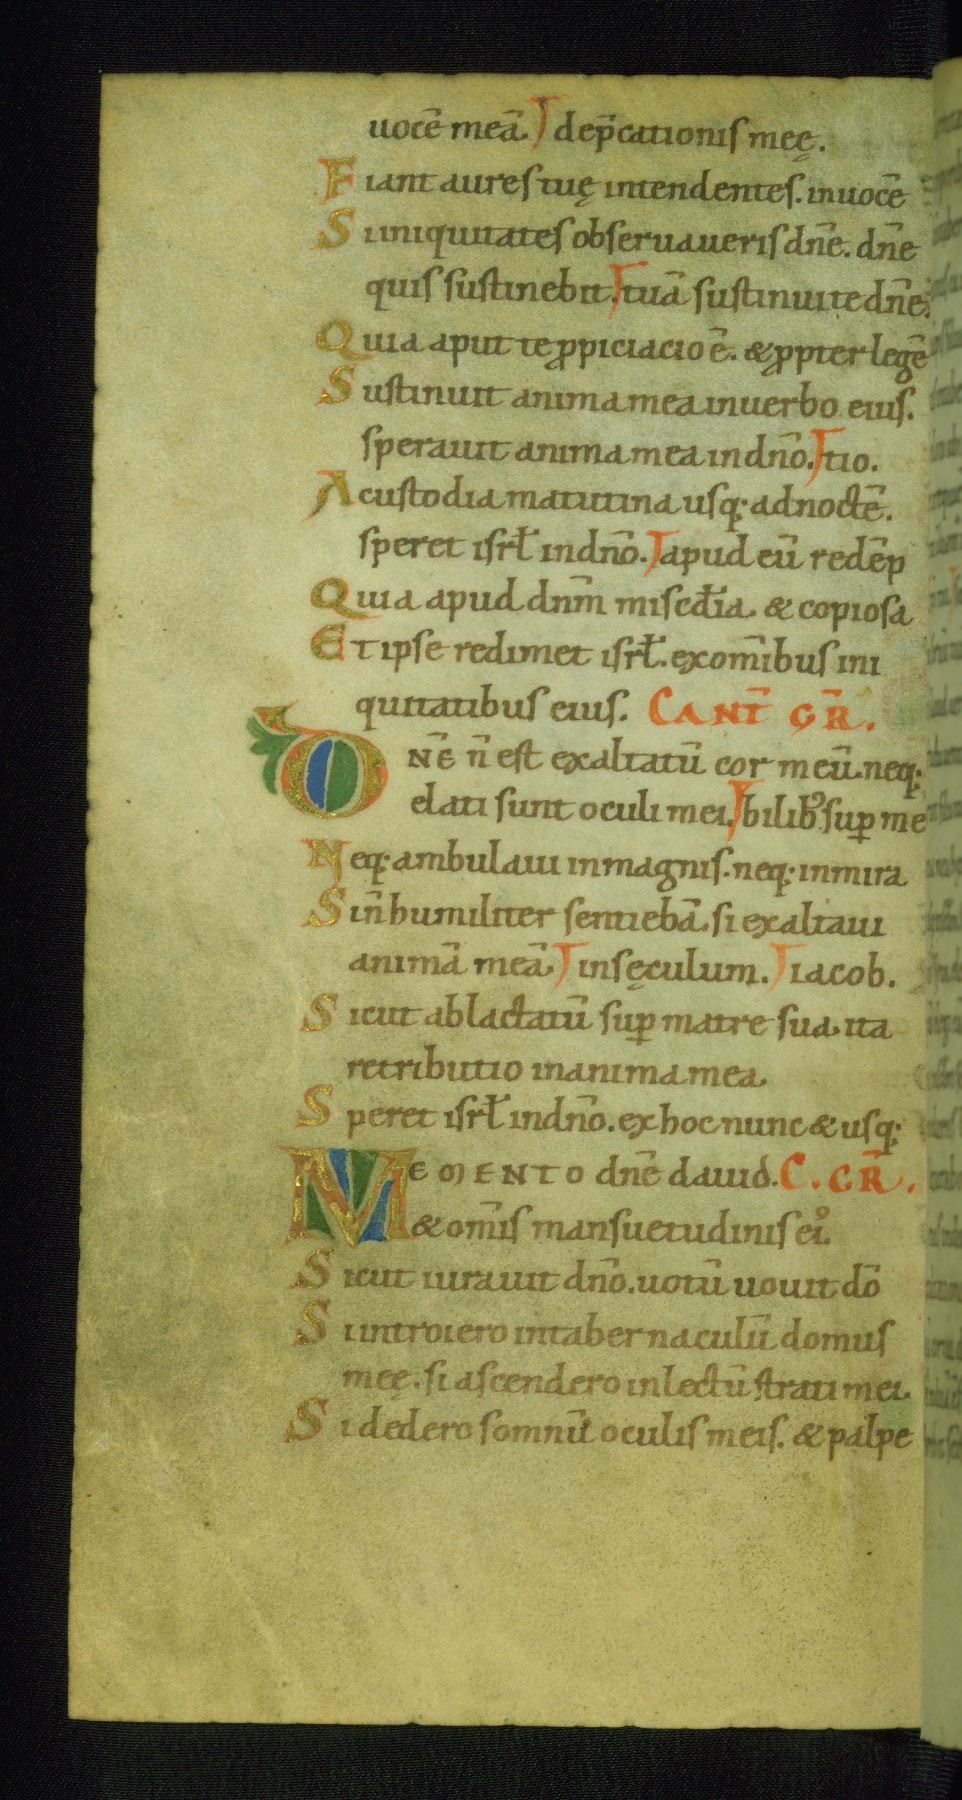 uocē meā. dep̄cationis meę.
Fiant aures tuę intendentes. in uocē
Si iniquitates obseruaueris dn̄e. dn̄e
quis sustinebit. tuā sustinui te dn̄e.
Quia aput te ꝓpiciacio ē. & ꝓpter legē
Sustinuit anima mea in uerbo eius.
sperauit anima mea in dn̄o. tio.
A custodia matutina usq; ad noctē.
speret isrł in dn̄o. apud eū redēp
Quia apud dnm̄ misc̄dia. & copiosa
Et ipse redimet isrł. ex om̄ibus ini
quitatibus eius. CANT̄ GR̄.
DNĒ n̄ est exaltatū cor meū. neq;
elati sunt oculi mei. bilib; suꝑ me
Neq; ambulaui in magnis. neq; in mira
Si n̄ humiliter sentiebā. si exaltaui
animā meā. in sęculum. iacob.
Sicut ablactatū suꝑ matre sua. ita
retributio in anima mea.
Speret isrł in dn̄o. ex hoc nunc & usq;
MEMENTO dn̄e dauid. C. GR̄.
& om̄is mansuetudinis ei᾿.
Sicut iurauit dn̄o. uotū uouit dō
Si introiero in tabernaculū domus
meę. si ascendero in lectū strati mei.
Si dedero somnū oculis meis. & palpe